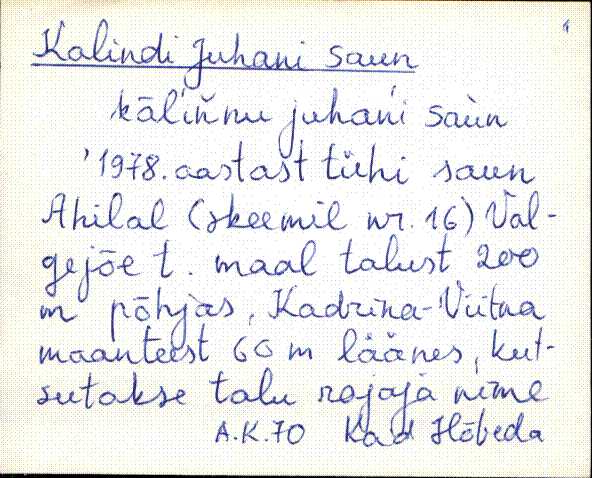 Kalindi Juhani saun
kāliňnu juhani saùn
'1978. aastast tühi saun
Ahilal (skeemil nr. 16) Val-
gejõe t. maal talust 200
m põhjas, Kadrina-Viitna
maanteest 60 m läänes, kut-
sutakse talu rajaja nime
A.K.70 Kad Hõbeda